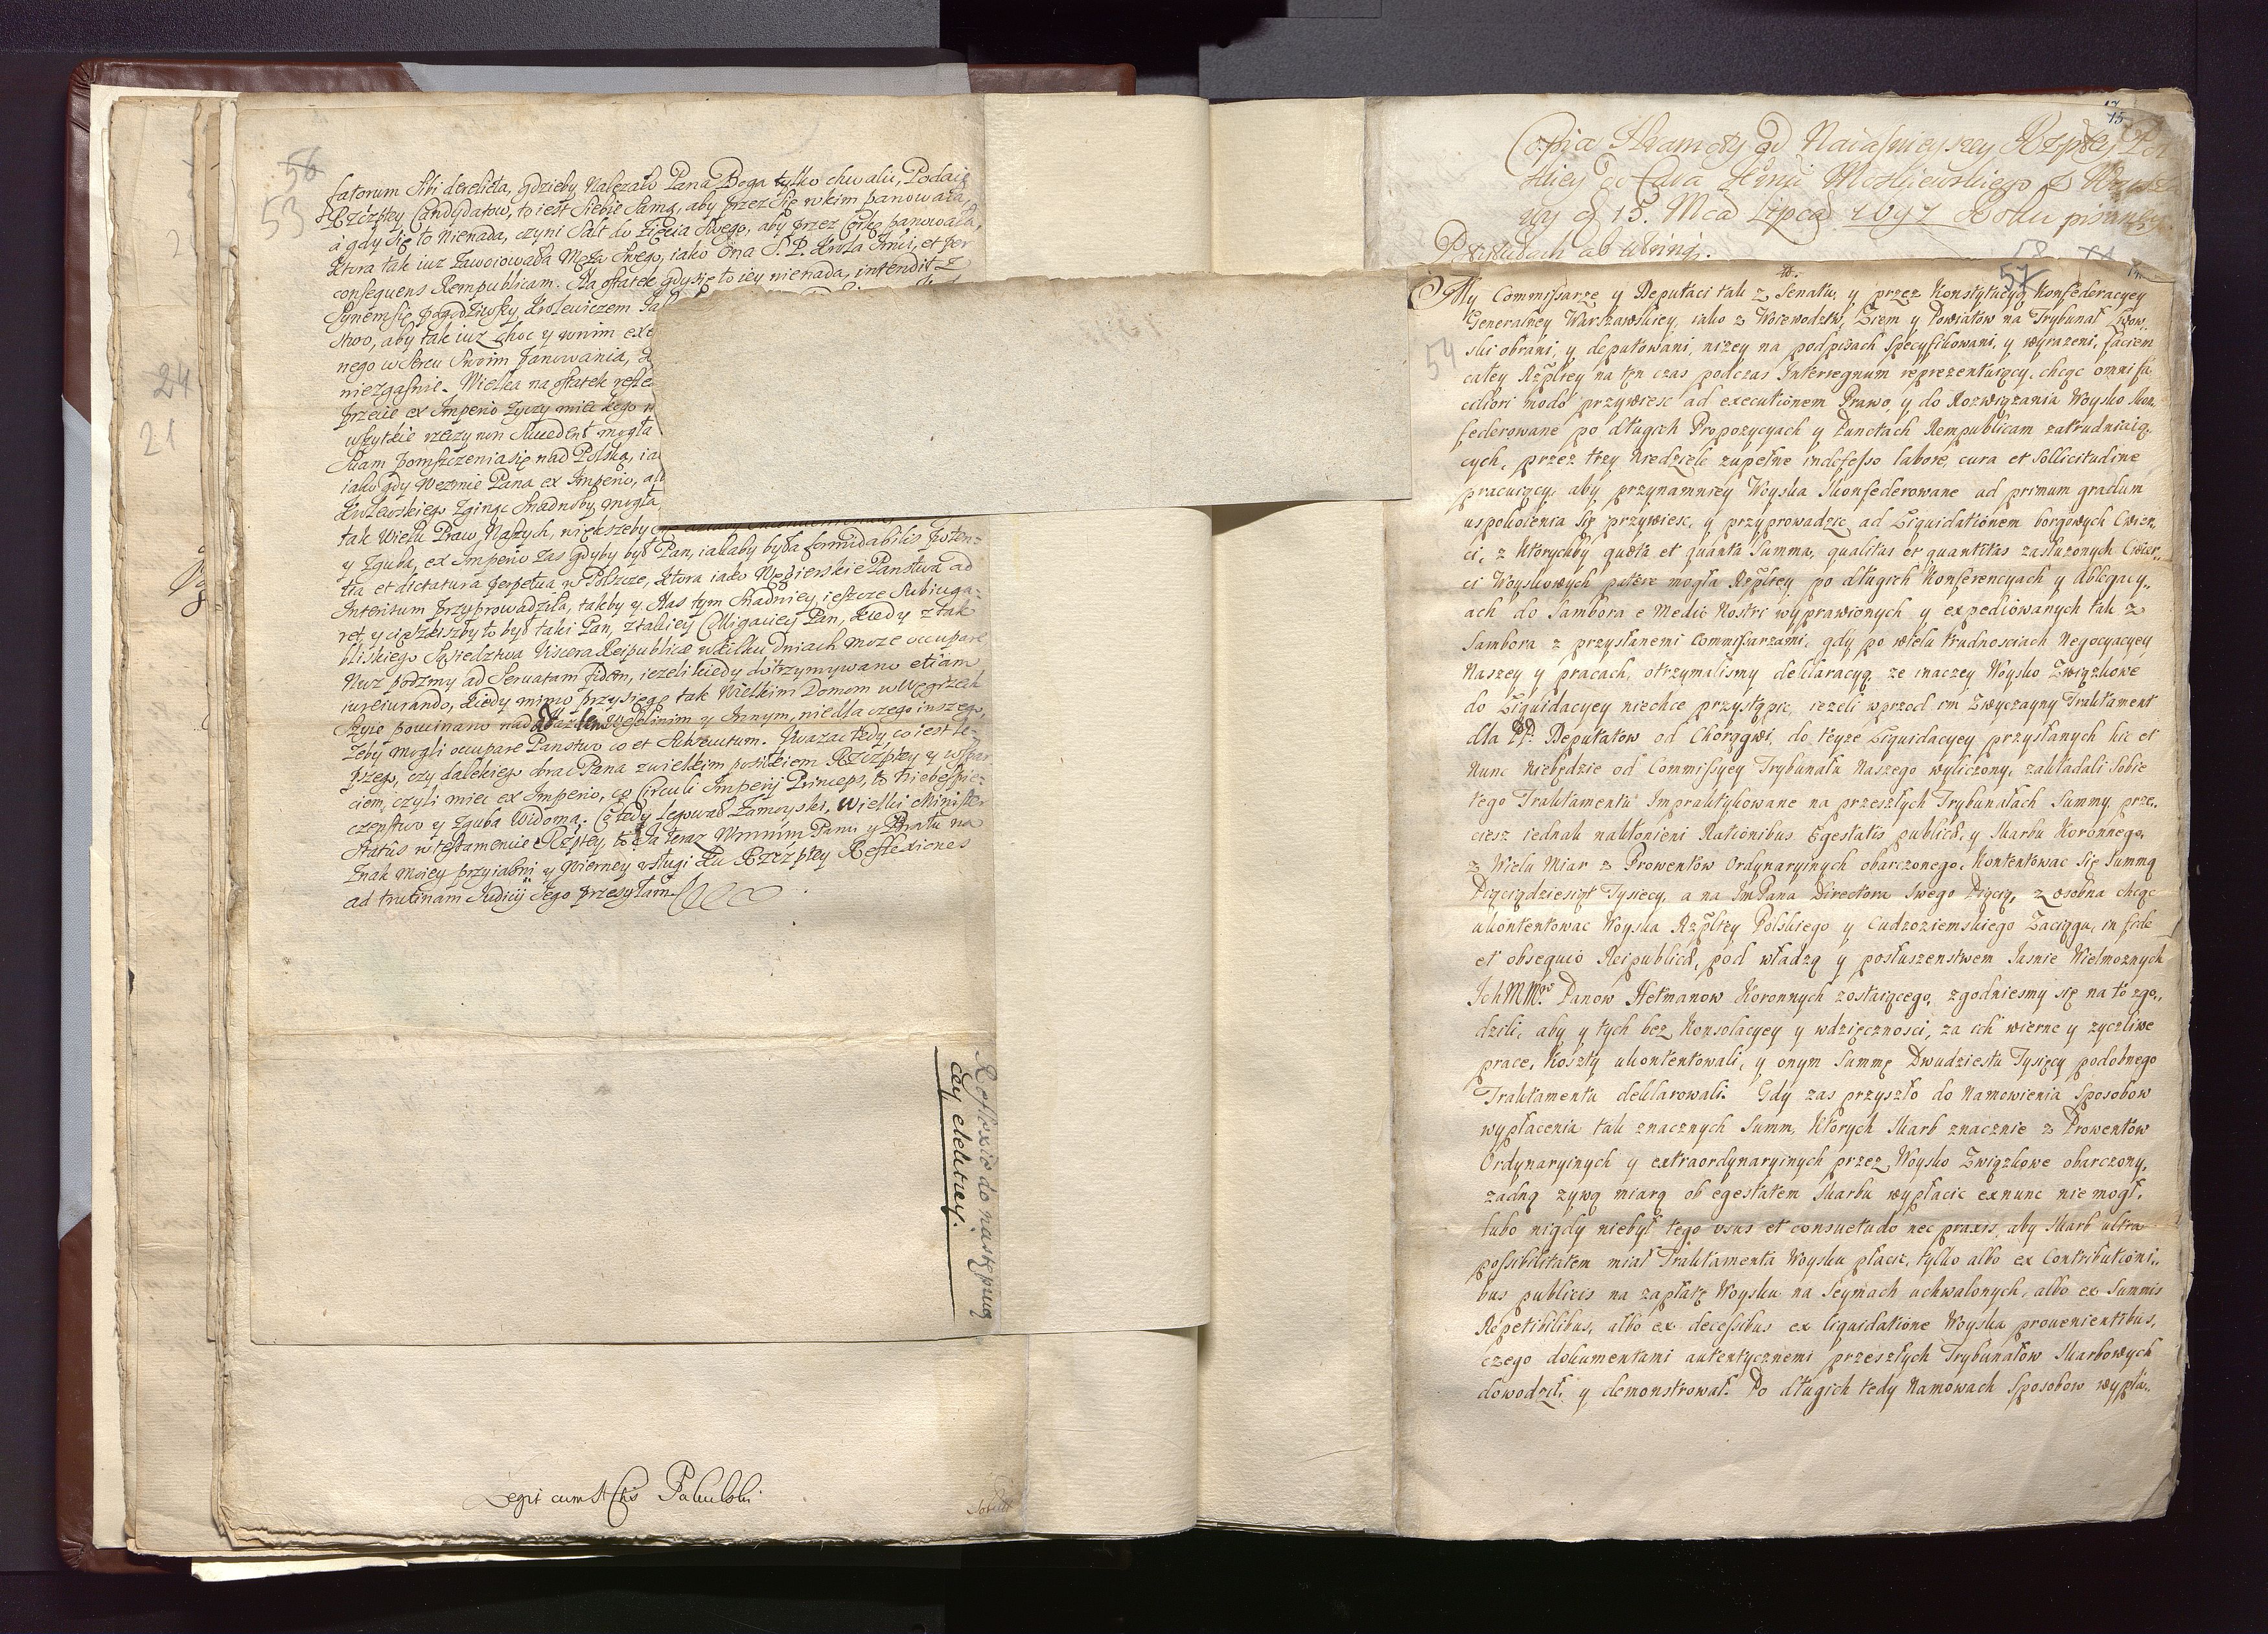 56
53
fatorum Sibi derelicta, gdzieby Należało Pana Boga tylko chwalić, Podaię
Rzczptey Candydatow, to iest Siebie Samą, aby przez Się w kim panowała,
a gdy się to nienada, czyni Salt do Zięcia Swego, aby przez Corkę panowała,
Ktora tak iuz Zawoiowała Męża Swego, iako Ona S. P. Krola Jmci, et per
consequens Rempublicam. Na ostatek gdy się to iey nienada, intendit z
Synem się pogodziwszy, Krolewiczem
stwo, aby tak iuz choc y w nim
nego w Sercu Swoim Panowania,
niezgasnie. Wielka na ostatek
przecie ex Imperio zyczy miec kogo
wszytkie rzeczy non Succedent mogła
Suam pomszczenia się nad Polską,
iako gdy Wezmie Pana ex Imperio,
Krolewskiego Zginąc Snadnoby mogła
tak Wielu Praw Naszych, większeby
y Zguba, ex Imperio zas gdyby był Pan, iakaby była formidabilis poten-
tia et dictatura perpetua w Polszcze, Ktora iako Węgierskie Panstwa ad
Interitum przyprowadziła, takby y Nas tym Snadniey, ieszcze Subiuga-
ret, y cięższyby to był taki Pan, z takiey Colligaciey Pan, Kiedy z tak
bliskiego Sąsiedztwa Viscera Reipublicæ w kilku dniach moze occupare
Nuz podzmy ad Servatam fidem, iezeli kiedy dotrzymywano etiam
iureiurando, Kiedy mimo przysięgę tak Wielkim Domom w Węgrzech
Szyie poucinano nad Wesselinim y Innym, nie dla czego inszego,
Zeby mogli occupare Panstwo co et Subsecutum. Uwazac tedy co iest le-
pszego, czy dalekiego obrac Pana z wielkim posiłkiem Rzczptey y wspar
ciem, czyli miec ex Imperio, co Circuli Imperij Princeps, to niebespie-
czenstwo y Zguba Widoma. Co tedy legował Zamoyski, Wielki Minister
Status w testamencie Rzptey, to Ja teraz Wmmm Panu y Bratu na
Znak moiey przyiazni y Wierney usługi Ku Rzczptey Reflexiones
ad trutinam Judicij Jego przesyłam.
Reflexie do następuią
cey elekcyey.
Legit cum Actis Pakulski
24
21
17
15
Copia Hramoty od Naiasnieyszey Rzptey Pol
skiey do Cara Jmci Moskiewskiego z Warsza
wy d 15. Mca Lipca 1697 Roku pisaney
57
54
My Commissarze y Deputaci tak z Senatu, y przez Konstytucyą Konfederacyey
Generalney Warszawskiey, iako z Woiewodztw, Ziem y Powiatow na Trybunał Lwow-
ski obrani, y deputowani, nizey na podpisach Specyfikowani, y wyrazeni, faciem
całey Rzpltey na ten czas podczas Interregnum reprezentuiący, chcąc omni fa
ciliori modo przywiesc ad executionem Prawo, y do Rozwiązania Woysko Skon
federowane po długich Propozycyach y Punctach Rempublicam zatrudniaią-
cych, przez trzy Niedziele zupełne indefesso labore, cura et Sollicitudine
pracuiący, aby przynamniey Woyska Skonfederowane ad primum gradum
uspokoienia Się przywiesc, y przyprowadzic, ad Liquidationem borgowych Cwier-
ci, z Ktorychby quæta et quanta Summa, qualitas et quantitas zasłuzonych Cwier-
ci Woyskowych patere mogła Rzpltey po długich Konferencyach y Ablegacy-
ach do Sambora e Medio Nostri wyprawionych y expediowanych tak z
Sambora z przysłanemi Commissarzami, gdy po wielu trudnosciach Negocyacyey
Naszey y pracach, otrzymalismy deklaracyą, ze inaczey Woysko Związkowe
do Liquidacyey niechce przystąpic, iezeli wprzod im Zwyczayny Traktament
dla PP. Deputatow od Chorągwi, do teyze Liquidacyey przysłanych hic et
Nunc niebędzie od Commissyey Trybunału Naszego wyliczony, zakładali Sobie
tego Traktamentu Impraktykowane na przeszłych Trybunałach Summy, prze-
ciesz iednak nakłonieni Rationibus Egestatis publicæ, y Skarbu Koronnego,
z Wielu Miar z Prowentow Ordynaryinych obarczonego, Kontentowac Się Summą
Pięciądziesiąt Tysięcy, a na ImPana Directora Swego Pięcią, z osobna chcąc
ukontentowac Woyska Rzpltey Polskiego y Cudzoziemskiego Zaciągu, in fide
et obsequio Reipublicæ, pod władzą y posłuszenstwem Jasnie Wielmoznych
Ich MMciow Panow Hetmanow Koronnych zostaiącego, zgodniesmy się na to zgo-
dzili, aby y tych bez Konsolacyey y wdzięcznosci, za ich wierne y zyczliwe
prace, Koszty ukontentowali, y onym Summę Dwudziestu Tysięcy podobnego
Traktamentu deklarowali. Gdy zas przyszło do Namowienia Sposobow
wypłacenia tak znacznych Summ, Ktorych Skarb znacznie z Prowentow
Ordynaryinych y extraordynaryinych przez Woysko Związkowe obarczony,
zadną zywą miarą ob egestatem Skarbu wypłacic ex nunc nie mogł,
lubo nigdy niebył tego usus et consuetudo nec praxis, aby Skarb ultra
possibilitatem miał Traktamenta Woysku płacic, tylko albo ex Contributioni-
bus publicis na zapłatę Woysku na Seymach uchwalonych, albo ex Summis
Repetibilibus, albo ex decessibus ex liquidatione Woyska provenientibus,
czego dokumentami autentycznemi przeszłych Trybunałow Skarbowych
dowodził, y demonstrował. Po długich tedy Namowach Sposobow wypła-